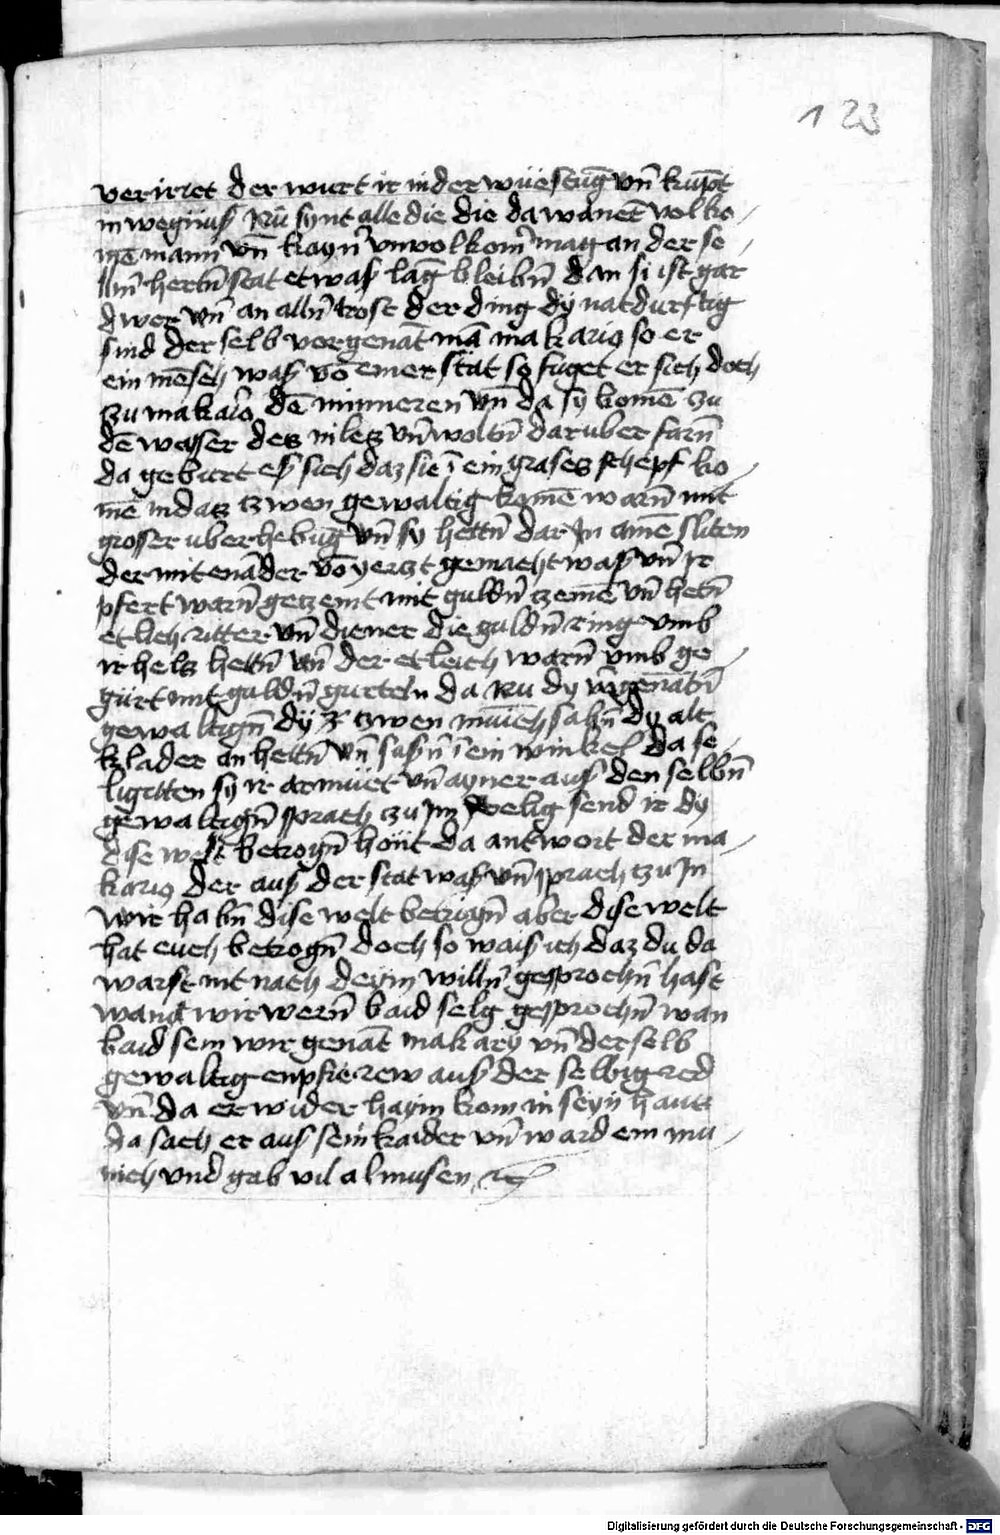 123
verirret der wurt ir in der wüestūg vn̄ kūpt
in wegnus Nū synt alle die die da wanēt volko-
mē mann vn̄ kayn̄ vnwolkom̄ mag an der se-
lbn̄ hertn̄ stat etwaß lāg bleibn̄ dan si ist gar
swer vn̄ an alln̄ trost der ding dÿ natdurftig
sind der selb vorgenāt mā makarius so er
ein mēsch waß vō einer stat so fuget er sich doch
zu makario dē minneren vn̄ da sÿ komē zu
dē wasser des niletz vn̄ woltn̄ daruber farn̄
da geburt eß sich daz sie ī ein grasetz schepf ko-
mē in daz tzwen gewaltig komē warn̄ mit
groser uberhebūg vn̄ sÿ hettn̄ dar Jn ainē sliten
der mit enāder vō yertzt gemacht waß vn̄ Jr
pfert warn̄ getzemt mit guldn̄ tzemē vn̄ hetn̄
etlich ritter vn̄ diener die guldn̄ ringe vmb
ir hels hettn̄ vn̄ der etleich warn̄ vmb ge-
gürt mit guldn̄ gurteln da Nu dÿ vorgenātn̄
gewaltign̄ dÿ tzwen münich sahn̄ dÿ alt
klader an hettn̄ vn̄ sasn̄ ī ein winkel da se-
ligetten sÿ ir armüet vn̄ ayner auß den selbn̄
gewaltign̄ sprach tzu Jm selig send ir dÿ
dise welt betrogn̄ hönt da antwort der ma-
karius der auß der stat waß vn̄ sprach tzu Jn
wir habn̄ dise welt betrogn̄ aber dise welt
hat euch betrogn̄ doch so waiß ich daz du da
warst nit nach deym willn̄ gesprochn̄ hast
wand wir wern̄ baid selg gesprochn̄ wan
baid sein wir genāt makarÿ vn̄ der selb
gewaltig enpfie rew auß der selbig red
vn̄ da er wider haym kom in seyn haus
da sach er auß sein kaider vn̄ ward ein mu-
nich vnd gab vil almusen etc
Digitalisierung gefördert durch die Deutsche Forschungsgemeinschaft - DFG